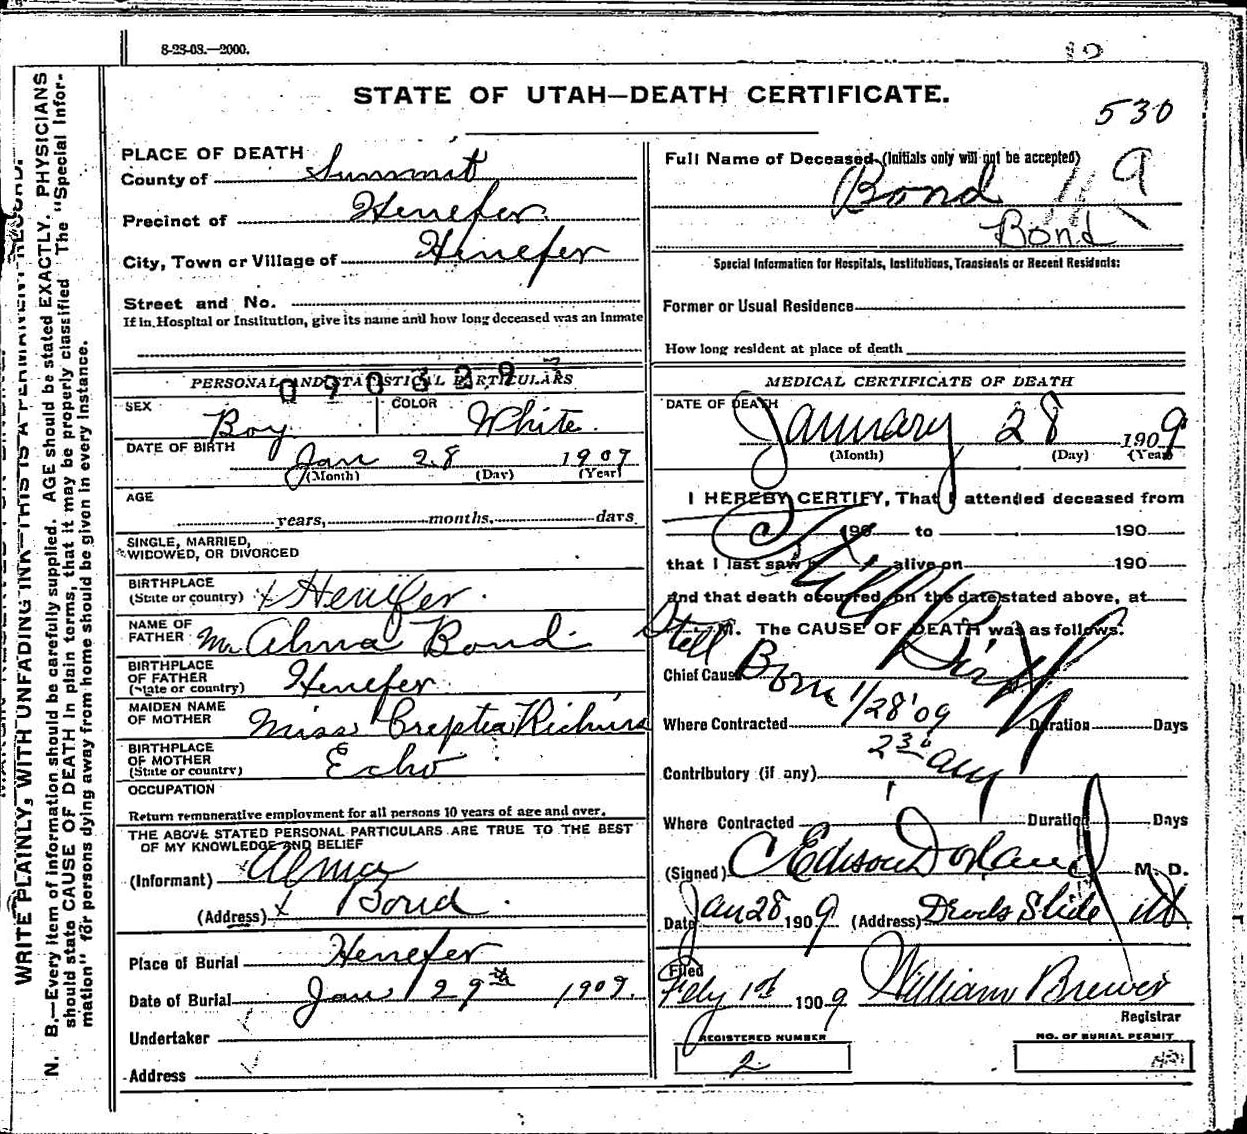 8-28-08.—2000.
STATE OF UTAH—DEATH CERTIFICATE.
530
PLACE OF DEATH
County of Summit
Precinct of Henefer
City, Town or Village of Henefer
Street and No.
If in Hospital or Institution, give its name and how long deceased was an inmate
PERSONAL AND STATISTICAL PARTICULARS
SEX Boy COLOR White.
DATE OF BIRTH
Jan 28 1909
(Month) (Day) (Year)
AGE
years, months, days
SINGLE, MARRIED,
WIDOWED, OR DIVORCED
BIRTHPLACE
(State or country) Henefer.
NAME OF
FATHER Mr Alma Bond
BIRTHPLACE
OF FATHER
(State or country) Henefer
MAIDEN NAME
OF MOTHER Miss Richins
BIRTHPLACE
OF MOTHER
(State or country) Echo
OCCUPATION
Return remunerative employment for all persons 10 years of age and over.
THE ABOVE STATED PERSONAL PARTICULARS ARE TRUE TO THE BEST
OF MY KNOWLEDGE AND BELIEF
(Informant) Alma
(Address) Bond.
Place of Burial Henefer
Date of Burial Jan 29th 1909.
Undertaker
Address
Full Name of Deceased (Initials only will not be accepted)
Bond 9
Bond
Special Information for Hospitals, Institutions, Transients or Recent Residents:
Former or Usual Residence
How long resident at place of death
MEDICAL CERTIFICATE OF DEATH
DATE OF DEATH
January 28 1909
(Month) (Day) (Year)
I HEREBY CERTIFY, That I attended deceased from
190 to 190
that I last saw h alive on 190
and that death occurred, on the date stated above, at
M. The CAUSE OF DEATH was as follows:
Still Birth
Still
Chief Cause Born 1/28'09
Where Contracted Duration Days
2 30 am
Contributory (if any)
Where Contracted Duration Days
(Signed) C Edison Dorland M. D.
Date Jan 28 1909 (Address) Devils Slide Ut
Filed
Feby 1st 1909 William Brewer
Registrar
REGISTERED NUMBER
2
NO. OF BURIAL PERMIT
WRITE PLAINLY, WITH UNFADING INK—THIS IS A PERMANENT RECORD.
N. B.—Every item of information should be carefully supplied. AGE should be stated EXACTLY. PHYSICIANS
should state CAUSE OF DEATH in plain terms, that it may be properly classified. The "Special Infor-
mation" for persons dying away from home should be given in every instance.